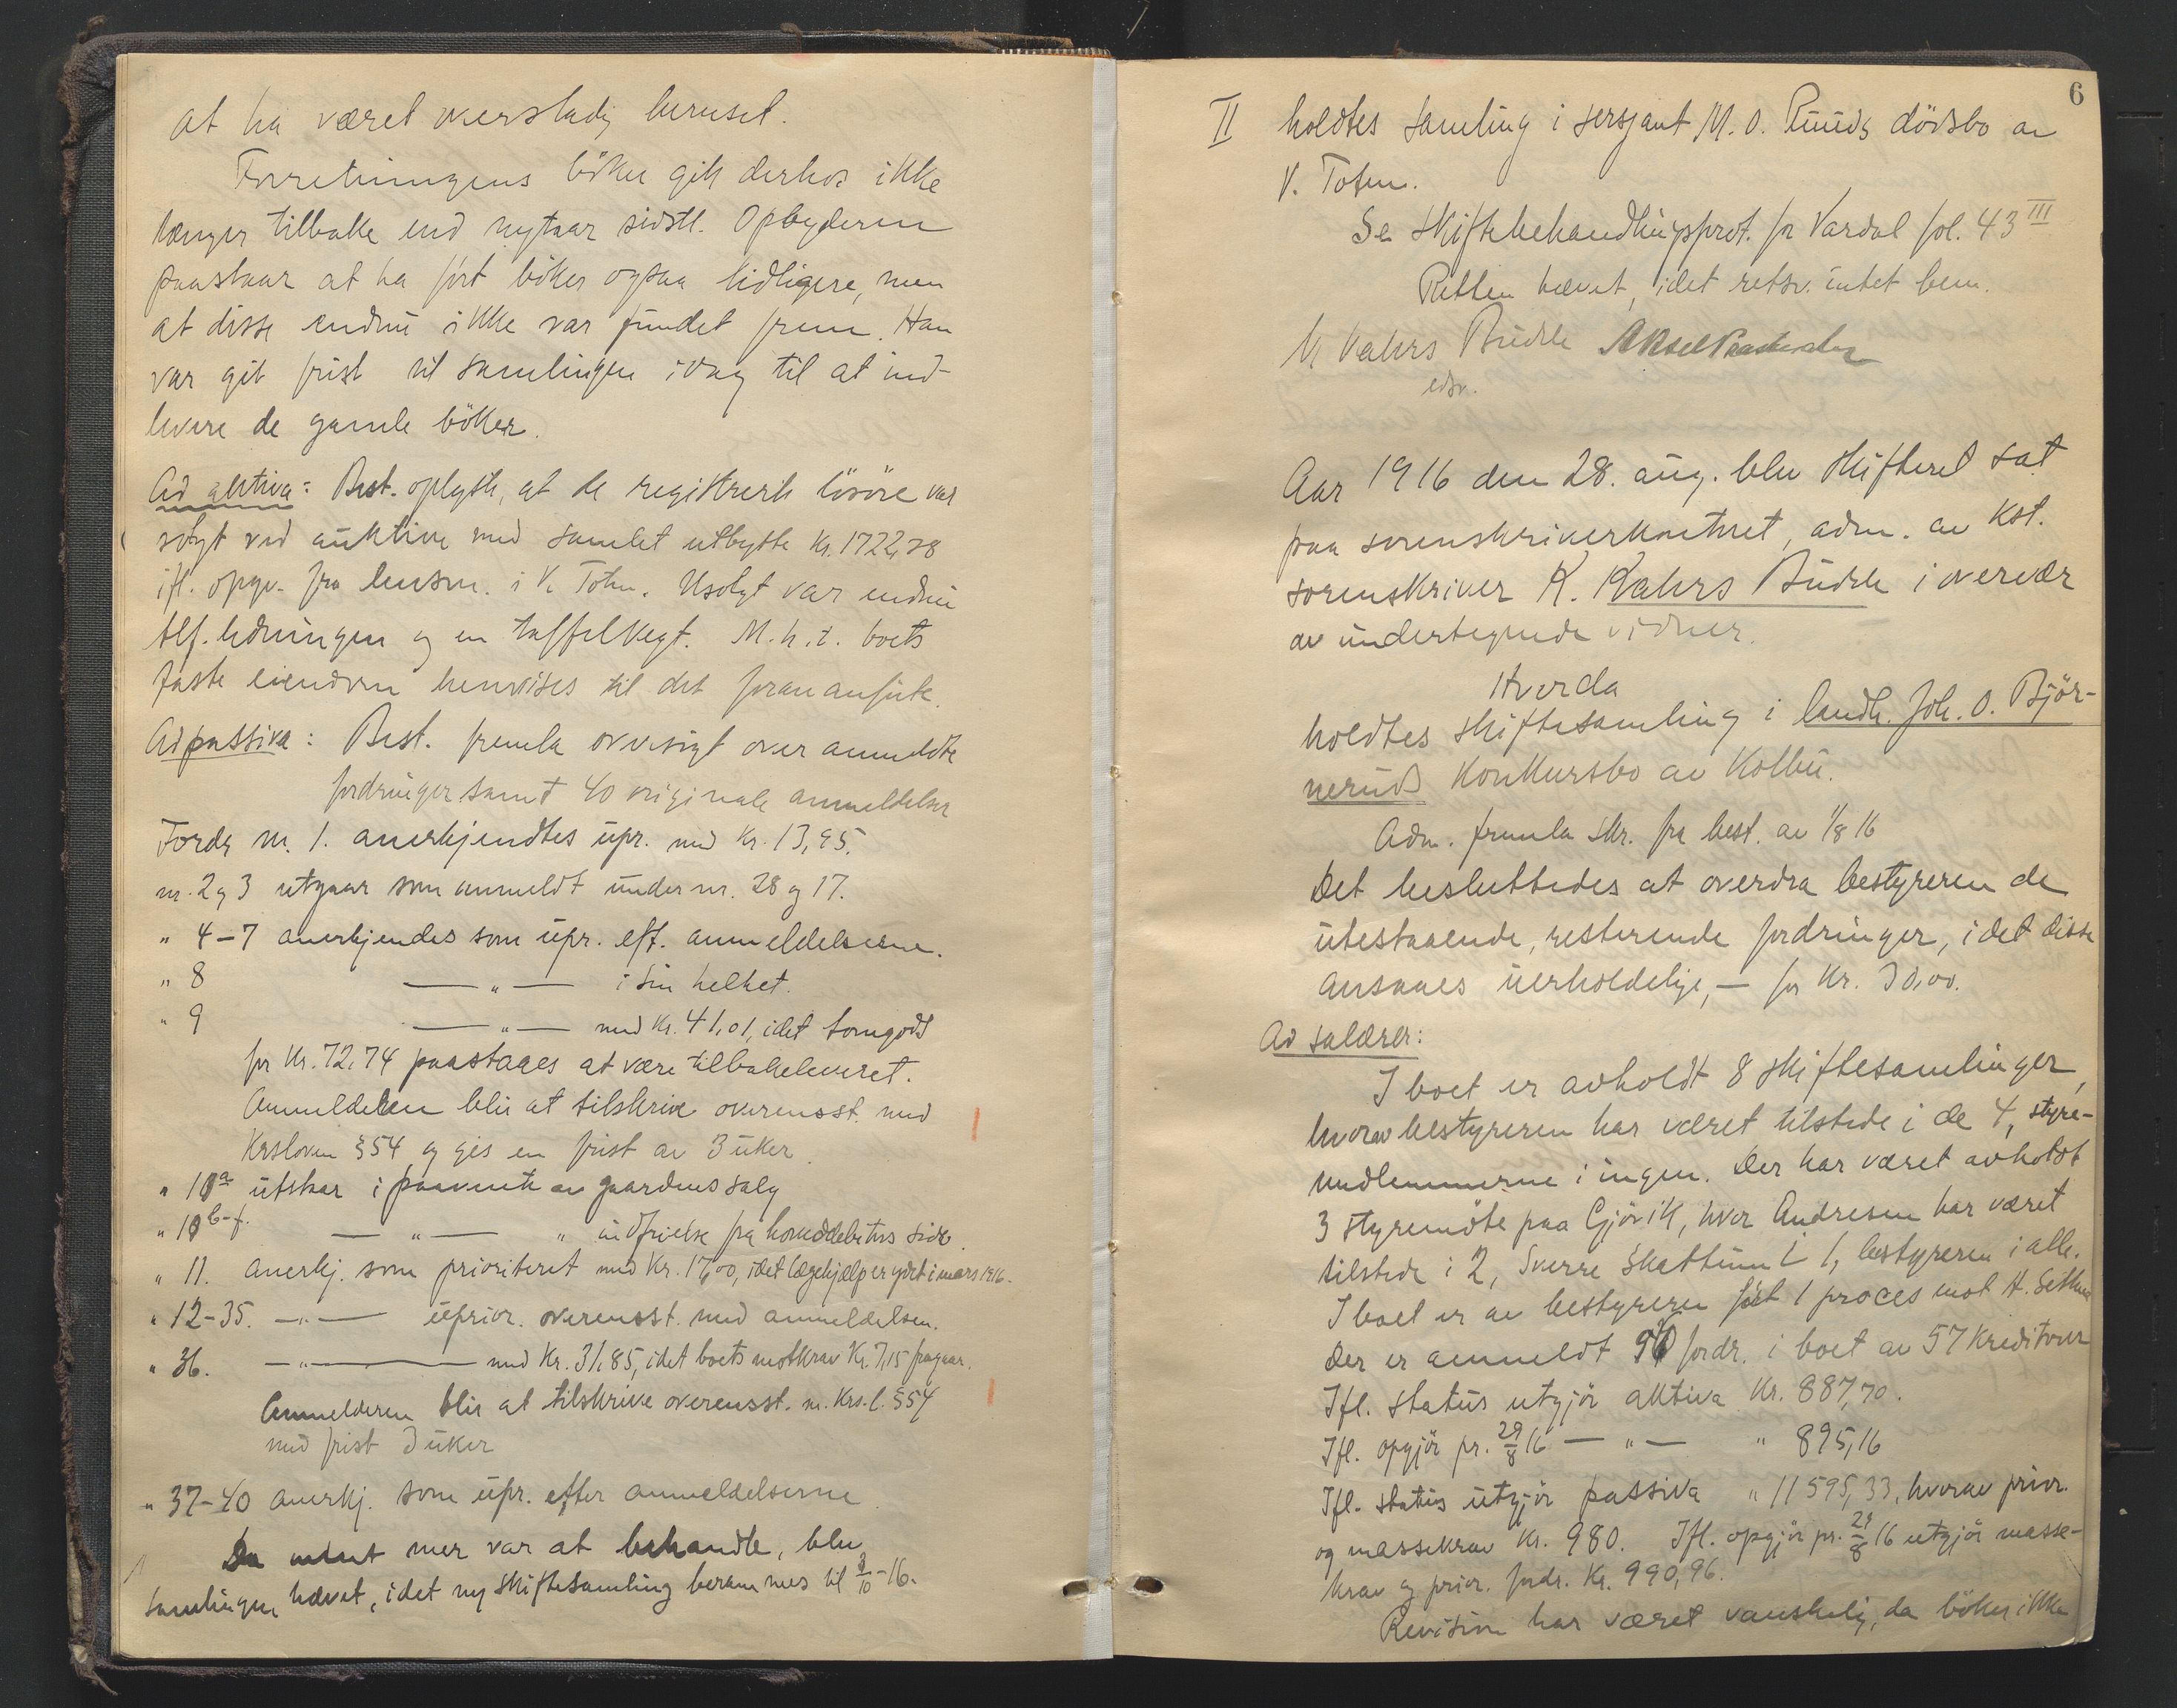 at ha været overstadig beruset.
Forretningens böker gik derhos ikke
længer tilbake end nytaar sidstl. Opbyderen
paastaar at ha fört böker ogsaa tidligere, men
at disse endnu ikke var fundet frem. Han
var git frist til samlingen idag til at ind-
levere de gamle böker.
Ad aktiva: Best. oplyste, at de registrerte lösöre var
solgt ved auktion med samlet utbytte Kr. 1722,28
ifl. opgv. fra lensm. i V. Toten. Usolgt var endnu
tlf. ledningen og en taffelvegt. M.h.t. boets
faste eiendom henvises til det foran anførte.
Ad passiva: Best. fremla oversigt over anmeldte
fordringer samt 40 originale anmeldelser
Fordr. nr. 1. anerkjendtes upr. med Kr. 13,95.
nr. 2 og 3 utgaar som anmeldt under nr. 28 og 17.
" 4-7 anerkjendes som upr. eft. anmeldelserne.
" 8 — " — i sin helhet.
" 9 — " — med Kr. 41,01, idet tomgods
for Kr. 72,74 paastaaes at være tilbakeleveret.
Anmelderen blir at tilskrive overensst. med
Krsloven § 54 og gis en frist av 3 uker.
" 10a utstaar i paavente av gaardens salg
" 10b-f. — " — " indfrielse fra hoveddebitors side.
" 11. anerkj. som prioriteret med Kr. 17,00, idet lægehjælp er ydet i mars 1916.
" 12-35. — " — uprior. overensst. med anmeldelsen.
" 36. — " — med Kr. 31,85, idet boets motkrav Kr. 7,15 fragaar.
Anmelderen blir at tilskrive overensst. m. Krs.l. § 54
med frist 3 uker
" 37-40 anerkj. som upr. efter anmeldelserne.
Da intet mer var at behandle, blev
samlingen hævet, idet ny skiftesamling berammes til 3/10-16.
6
II holdtes samling i sersjant M. O. Ruuds dödsbo av
V. Toten.
Se skiftebehandlingsprot. for Vardal fol. 43 III
Retten hævet, idet retsv. intet bem.
K Kahrs Budde Aksel
edsv.
Aar 1916 den 28. aug. blev skifteret sat
paa sorenskriverkontoret, adm. av Kst.
sorenskriver K. Kahrs Budde i overvær
av undertegnede vidner.
Hvorda
holdtes skiftesamling i landh. Joh. O. Björ-
neruds Konkursbo av Kolbu.
Adm. fremla skr. fra best. av 1/8 16
Det besluttedes at overdra bestyreren de
utestaaende, resterende fordringer, idet disse
ansaaes uerholdelige, — for Kr. 30,00.
Ad salærer:
I boet er avholdt 8 skiftesamlinger,
hvorav bestyreren har været tilstede i de 4, styre-
medlemmerne i ingen. Der har været avholdt
3 styremöte paa Gjövik, hvor Andresen har været
tilstede i 2, Sverre Skattum i 1, bestyreren i alle.
I boet er av bestyreren fört 1 proces mot H.
Der er anmeldt fordr. i boet av 57 kreditorer
Ifl. status utgjör aktiva Kr. 887,70.
Ifl. opgjör pr. 29/8 16 — " — " 895,16
Ifl. status utgjör passiva " 11 595,33, hvorav prior.
og massekrav Kr. 980. Ifl. opgjör pr. 29/8 16 utgjör masse-
krav og prior. fordr. Kr. 990,96.
Revision har været vanskelig, da böker ikke